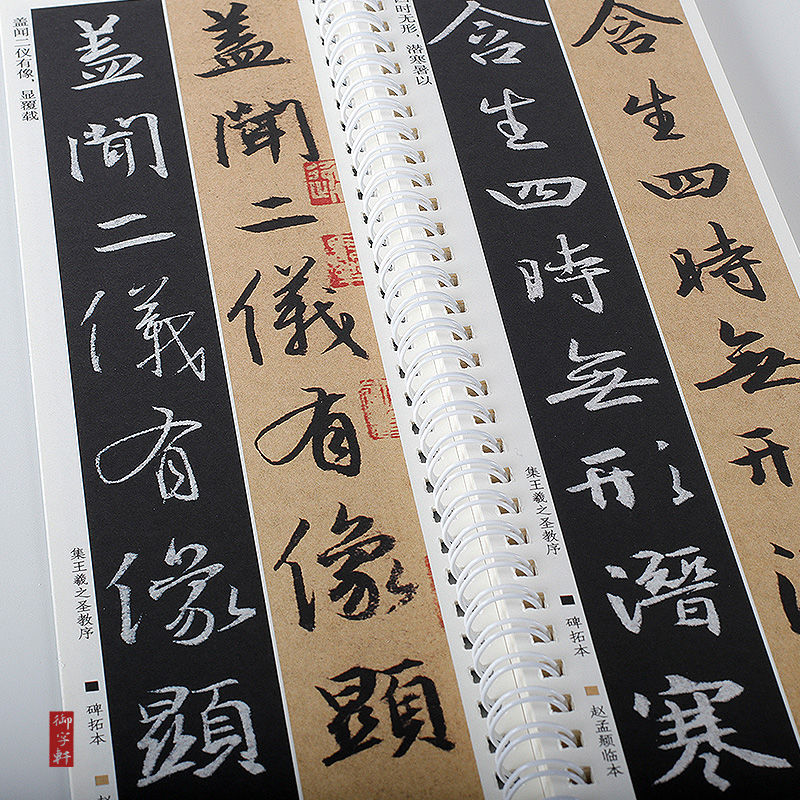 盖闻二仪有像，显覆载
集王羲之圣教序
碑拓本
赵
盖聞二儀有像顯
盖聞二儀有像顯
时无形，潜寒暑以
集王羲之圣教序
碑拓本
赵孟頫临本
含生四時無形潛寒
含生四時無形
御字軒